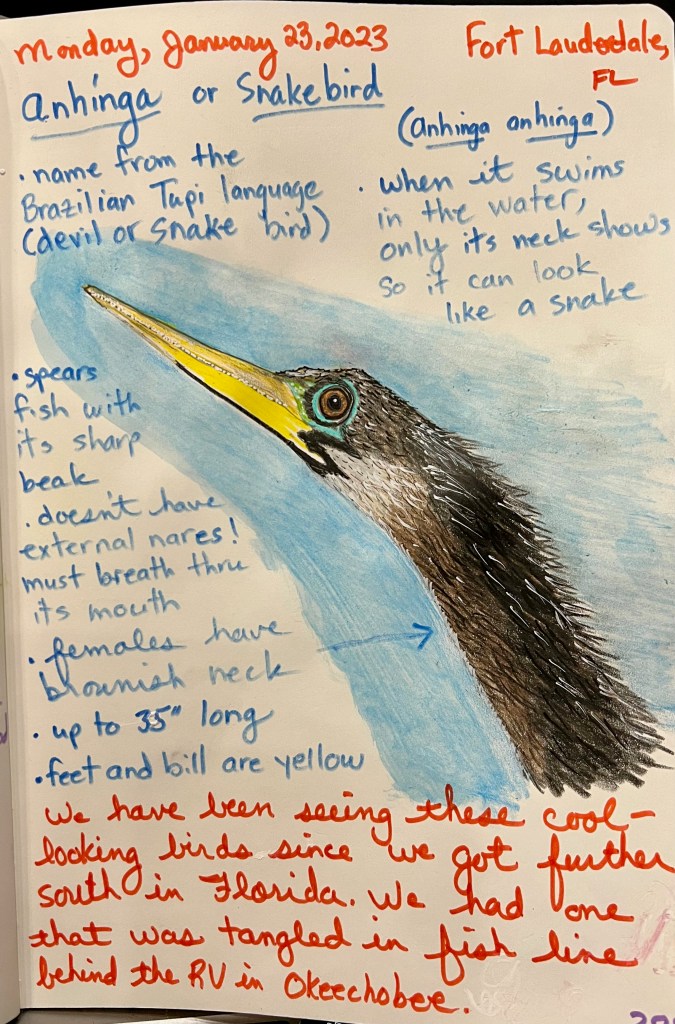 Monday, January 23, 2023
Fort Lauderdale,
FL
Anhinga or Snakebird
(Anhinga anhinga)
• name from the
Brazilian Tupi language
(devil or snake bird)
• when it swims
in the water,
only its neck shows
so it can look
like a snake
• spears
fish with
its sharp
beak
• doesn't have
external nares!
must breath thru
its mouth
• females have
brownish neck
• up to 35" long
• feet and bill are yellow
We have been seeing these cool-
looking birds since we got further
south in Florida. We had one
that was tangled in fish line
behind the RV in Okeechobee.